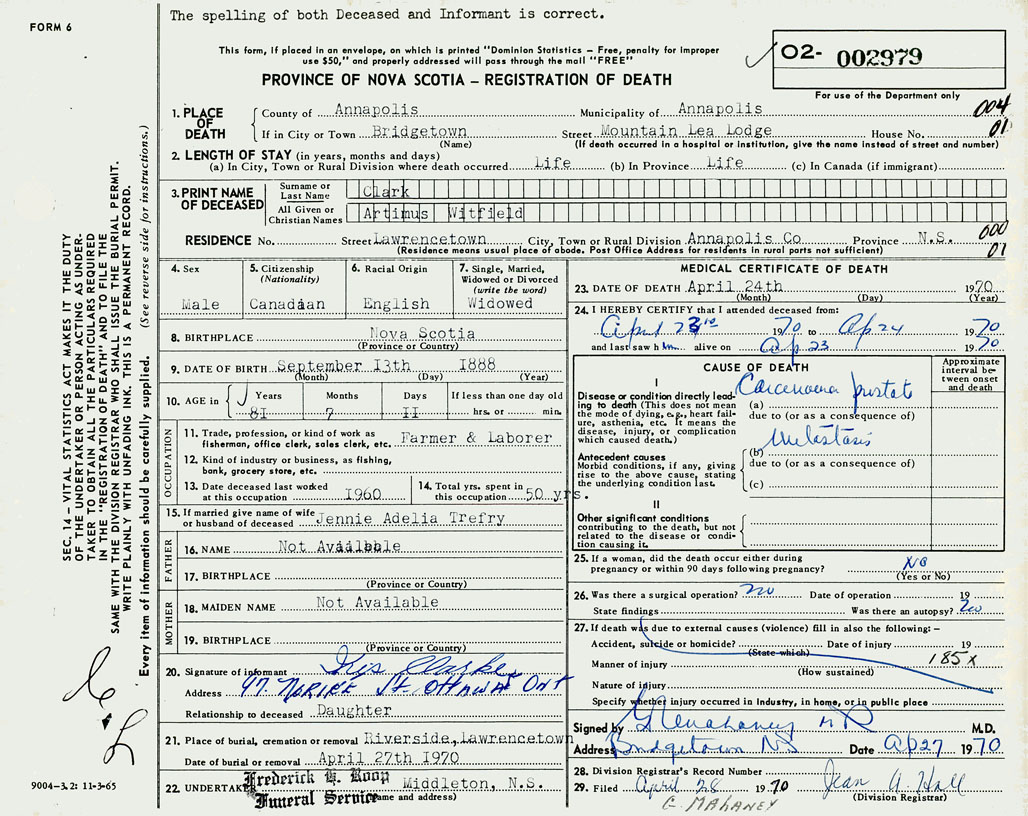 The spelling of both Deceased and Informant is correct.
FORM 6
This form, if placed in an envelope, on which is printed "Dominion Statistics – Free, penalty for improper
use $50," and properly addressed will pass through the mail "FREE"
PROVINCE OF NOVA SCOTIA – REGISTRATION OF DEATH
O2- 002979
For use of the Department only
1. PLACE OF DEATH
County of Annapolis Municipality of Annapolis 004
If in City or Town Bridgetown Street Mountain Lea Lodge House No. 01
(Name) (If death occurred in a hospital or institution, give the name instead of street and number)
2. LENGTH OF STAY (in years, months and days)
(a) In City, Town or Rural Division where death occurred Life (b) In Province Life (c) In Canada (if immigrant)
3. PRINT NAME OF DECEASED
Surname or Last Name Clark
All Given or Christian Names Artimus Witfield
000
RESIDENCE No. Street Lawrencetown City, Town or Rural Division Annapolis Co Province N.S.
(Residence means usual place of abode. Post Office Address for residents in rural parts not sufficient) 01
4. Sex
Male
5. Citizenship
(Nationality)
Canadian
6. Racial Origin
English
7. Single, Married,
Widowed or Divorced
(write the word)
Widowed
8. BIRTHPLACE Nova Scotia
(Province or Country)
9. DATE OF BIRTH September 13th 1888
(Month) (Day) (Year)
10. AGE in Years Months Days If less than one day old
81 7 11 hrs. or min.
OCCUPATION
11. Trade, profession, or kind of work as
fisherman, office clerk, sales clerk, etc. Farmer & Laborer
12. Kind of industry or business, as fishing,
bank, grocery store, etc.
13. Date deceased last worked
at this occupation 1960
14. Total yrs. spent in
this occupation 50 yrs.
15. If married give name of wife
or husband of deceased Jennie Adelia Trefry
FATHER
16. NAME Not Availbble
17. BIRTHPLACE
(Province or Country)
MOTHER
18. MAIDEN NAME Not Available
19. BIRTHPLACE
(Province or Country)
20. Signature of informant Clarke
Address 97. St. Ottawa Ont
Relationship to deceased Daughter
21. Place of burial, cremation or removal Riverside, lawrencetown
Date of burial or removal April 27th 1970
22. UNDERTAK Frederick H. Roop
Funeral Service Middleton, N.S.
ame and address)
MEDICAL CERTIFICATE OF DEATH
23. DATE OF DEATH April 24th 1970
(Month) (Day) (Year)
24. I HEREBY CERTIFY that I attended deceased from:
April 23rd 1970 to Ap 24 1970
and last saw him alive on Ap 23 1970
CAUSE OF DEATH
Approximate
interval be-
tween onset
and death
I
Disease or condition directly lead-
ing to death (This does not mean
the mode of dying, e.g., heart fail-
ure, asthenia, etc. It means the
disease, injury, or complication
which caused death.)
(a) Carcenoma prostate
due to (or as a consequence of)
(b) Metastasis
due to (or as a consequence of)
(c)
Antecedent causes
Morbid conditions, if any, giving
rise to the above cause, stating
the underlying condition last.
II
Other significant conditions
contributing to the death, but not
related to the disease or condi-
tion causing it.
25. If a woman, did the death occur either during
pregnancy or within 90 days following pregnancy? No
(Yes or No)
26. Was there a surgical operation? no Date of operation 19
State findings Was there an autopsy? no
27. If death was due to external causes (violence) fill in also the following: –
Accident, suicide or homicide? Date of injury 19
(State which) 185x
Manner of injury
(How sustained)
Nature of injury
Specify whether injury occurred in industry, in home, or in public place
Signed by M.D.
Address Bridgetown NS Date Ap 27 1970
28. Division Registrar's Record Number
29. Filed April 28 1970 Jean A. Hall
(Division Registrar)
G. MAHANEY
SEC. 14 – VITAL STATISTICS ACT MAKES IT THE DUTY
OF THE UNDERTAKER OR PERSON ACTING AS UNDER-
TAKER TO OBTAIN ALL THE PARTICULARS REQUIRED
IN THE "REGISTRATION OF DEATH" AND TO FILE THE
SAME WITH THE DIVISION REGISTRAR WHO SHALL ISSUE THE BURIAL PERMIT.
WRITE PLAINLY WITH UNFADING INK. THIS IS A PERMANENT RECORD.
Every item of information should be carefully supplied. (See reverse side for instructions.)
9004–3.2: 11-3-65